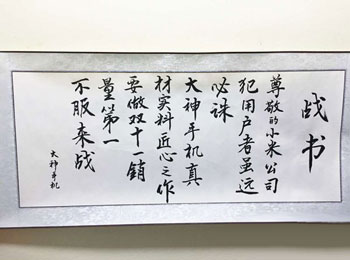 战书
尊敬的小米公司
犯用户者虽远
必诛
大神手机真
材实料匠心之作
要做双十一销
量第一
不服来战
大神手机